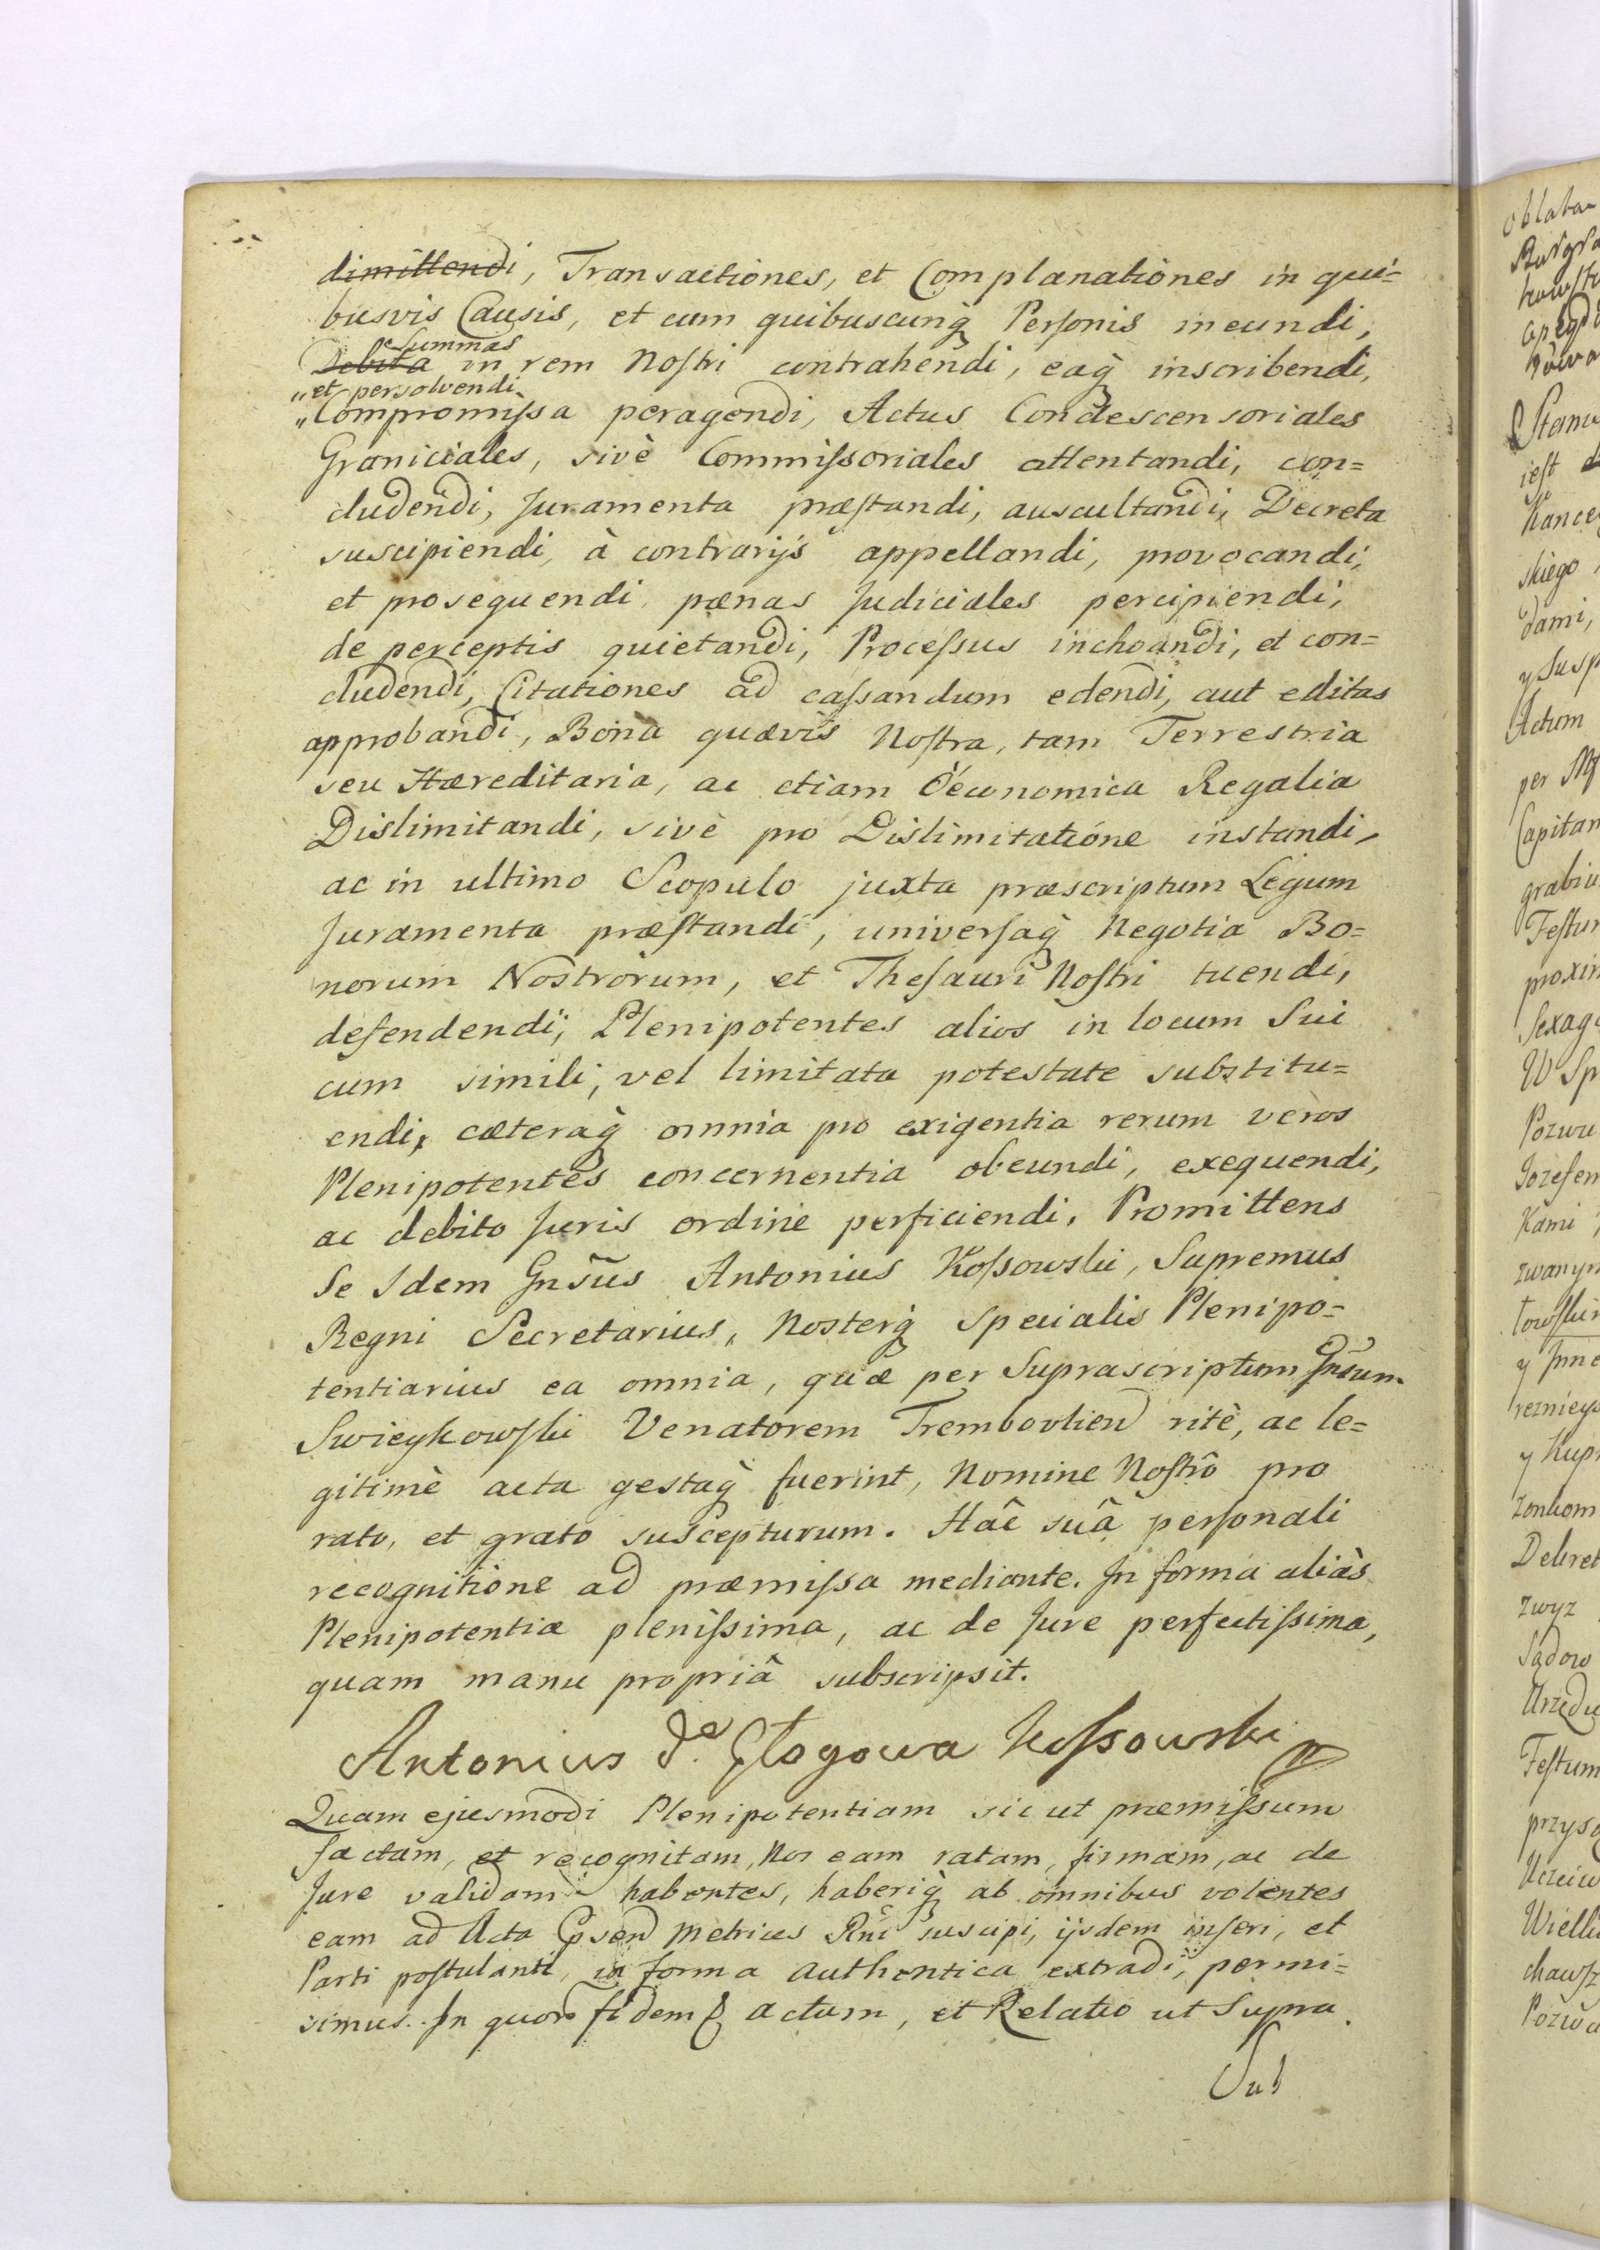 dimittendi, Transactiones, et Complanationes in qui=
busvis Causis, et cum quibuscunq̀ Personis ineundi,
Summas
Debita in rem Nostri contrahendi, eaq̀ inscribendi,
„et persolvendi
„Compromissa peragendi, Actus Condescensoriales
Graniciales, sivè Commissoriales attentandi, con=
cludendi, Juramenta præstandi, auscultandi, Decreta
suscipiendi, à contrarijs appellandi, provocandi,
et prosequendi pænas Judiciales percipiendi,
de perceptis quietandi, Processus inchoandi, et con=
cludendi, Citationes ad cassandum edendi, aut editas
approbandi, Bona quævis Nostra, tam Terrestria
seu Hæreditaria, ac etiam Oéconomica Regalia
Dislimitandi, sivè pro Dislimitatióne instandi,
ac in ultimo Scopulo juxta præscriptum Legum
Juramenta præstandi, universaq̀ Negotia Bo=
norum Nostrorum, et Thesauri Nostri tuendi,
defendendi, Plenipotentes alios in locum Sui
cum simili, vel limitata potestate substitu=
endi, cæteraq̀ omnia pro exigentia rerum veros
Plenipotentes concernentia obeundi, exequendi,
ac debito Juris ordine perficiendi, Promittens
Se Idem Gnsũs Antonius Kossowski, Supremus
Regni Secretarius, Nosterq̀ Specialis Plenipo=
tentiarius ea omnia, quæ per Suprascriptum Gnsũm
Swieykowski Venatorem Trembovlien ritè, ac le=
gitimè acta gestaq̀ fuerint, Nomine Nostrô pro
rato, et grato suscepturum. Hâc suâ personali
recognitione ad præmissa mediante. In forma aliàs
Plenipotentiæ plenissima, ac de Jure perfectissima,
quam manu propriâ subscripsit.
Antonius de Głogowa Kossowski
Quam ejusmodi Plenipotentiam sic ut præmissum
factam, et recognitam, Nos eam ratam, firmam, ac de
Jure validam habentes, haberiq̀ ab omnibus volentes
eam ad Acta Metrices Rni suscipi, ijsdem inseri, et
Parti postulanti, in forma authentica extradi, permi=
simus. In quor fidem actum, et Relatio ut Supra.
Sub
Oblata
Stanis
iest
skiego
dami,
Actum
per
Capitan
grabiu
Festum
proxim
Sexage
W Sp
Pozwu
Jozefem
Kami
zwanym
y Inne
y Kupi
Dekret
zwyz
Sądow
Urzędu
Festum
Wielki